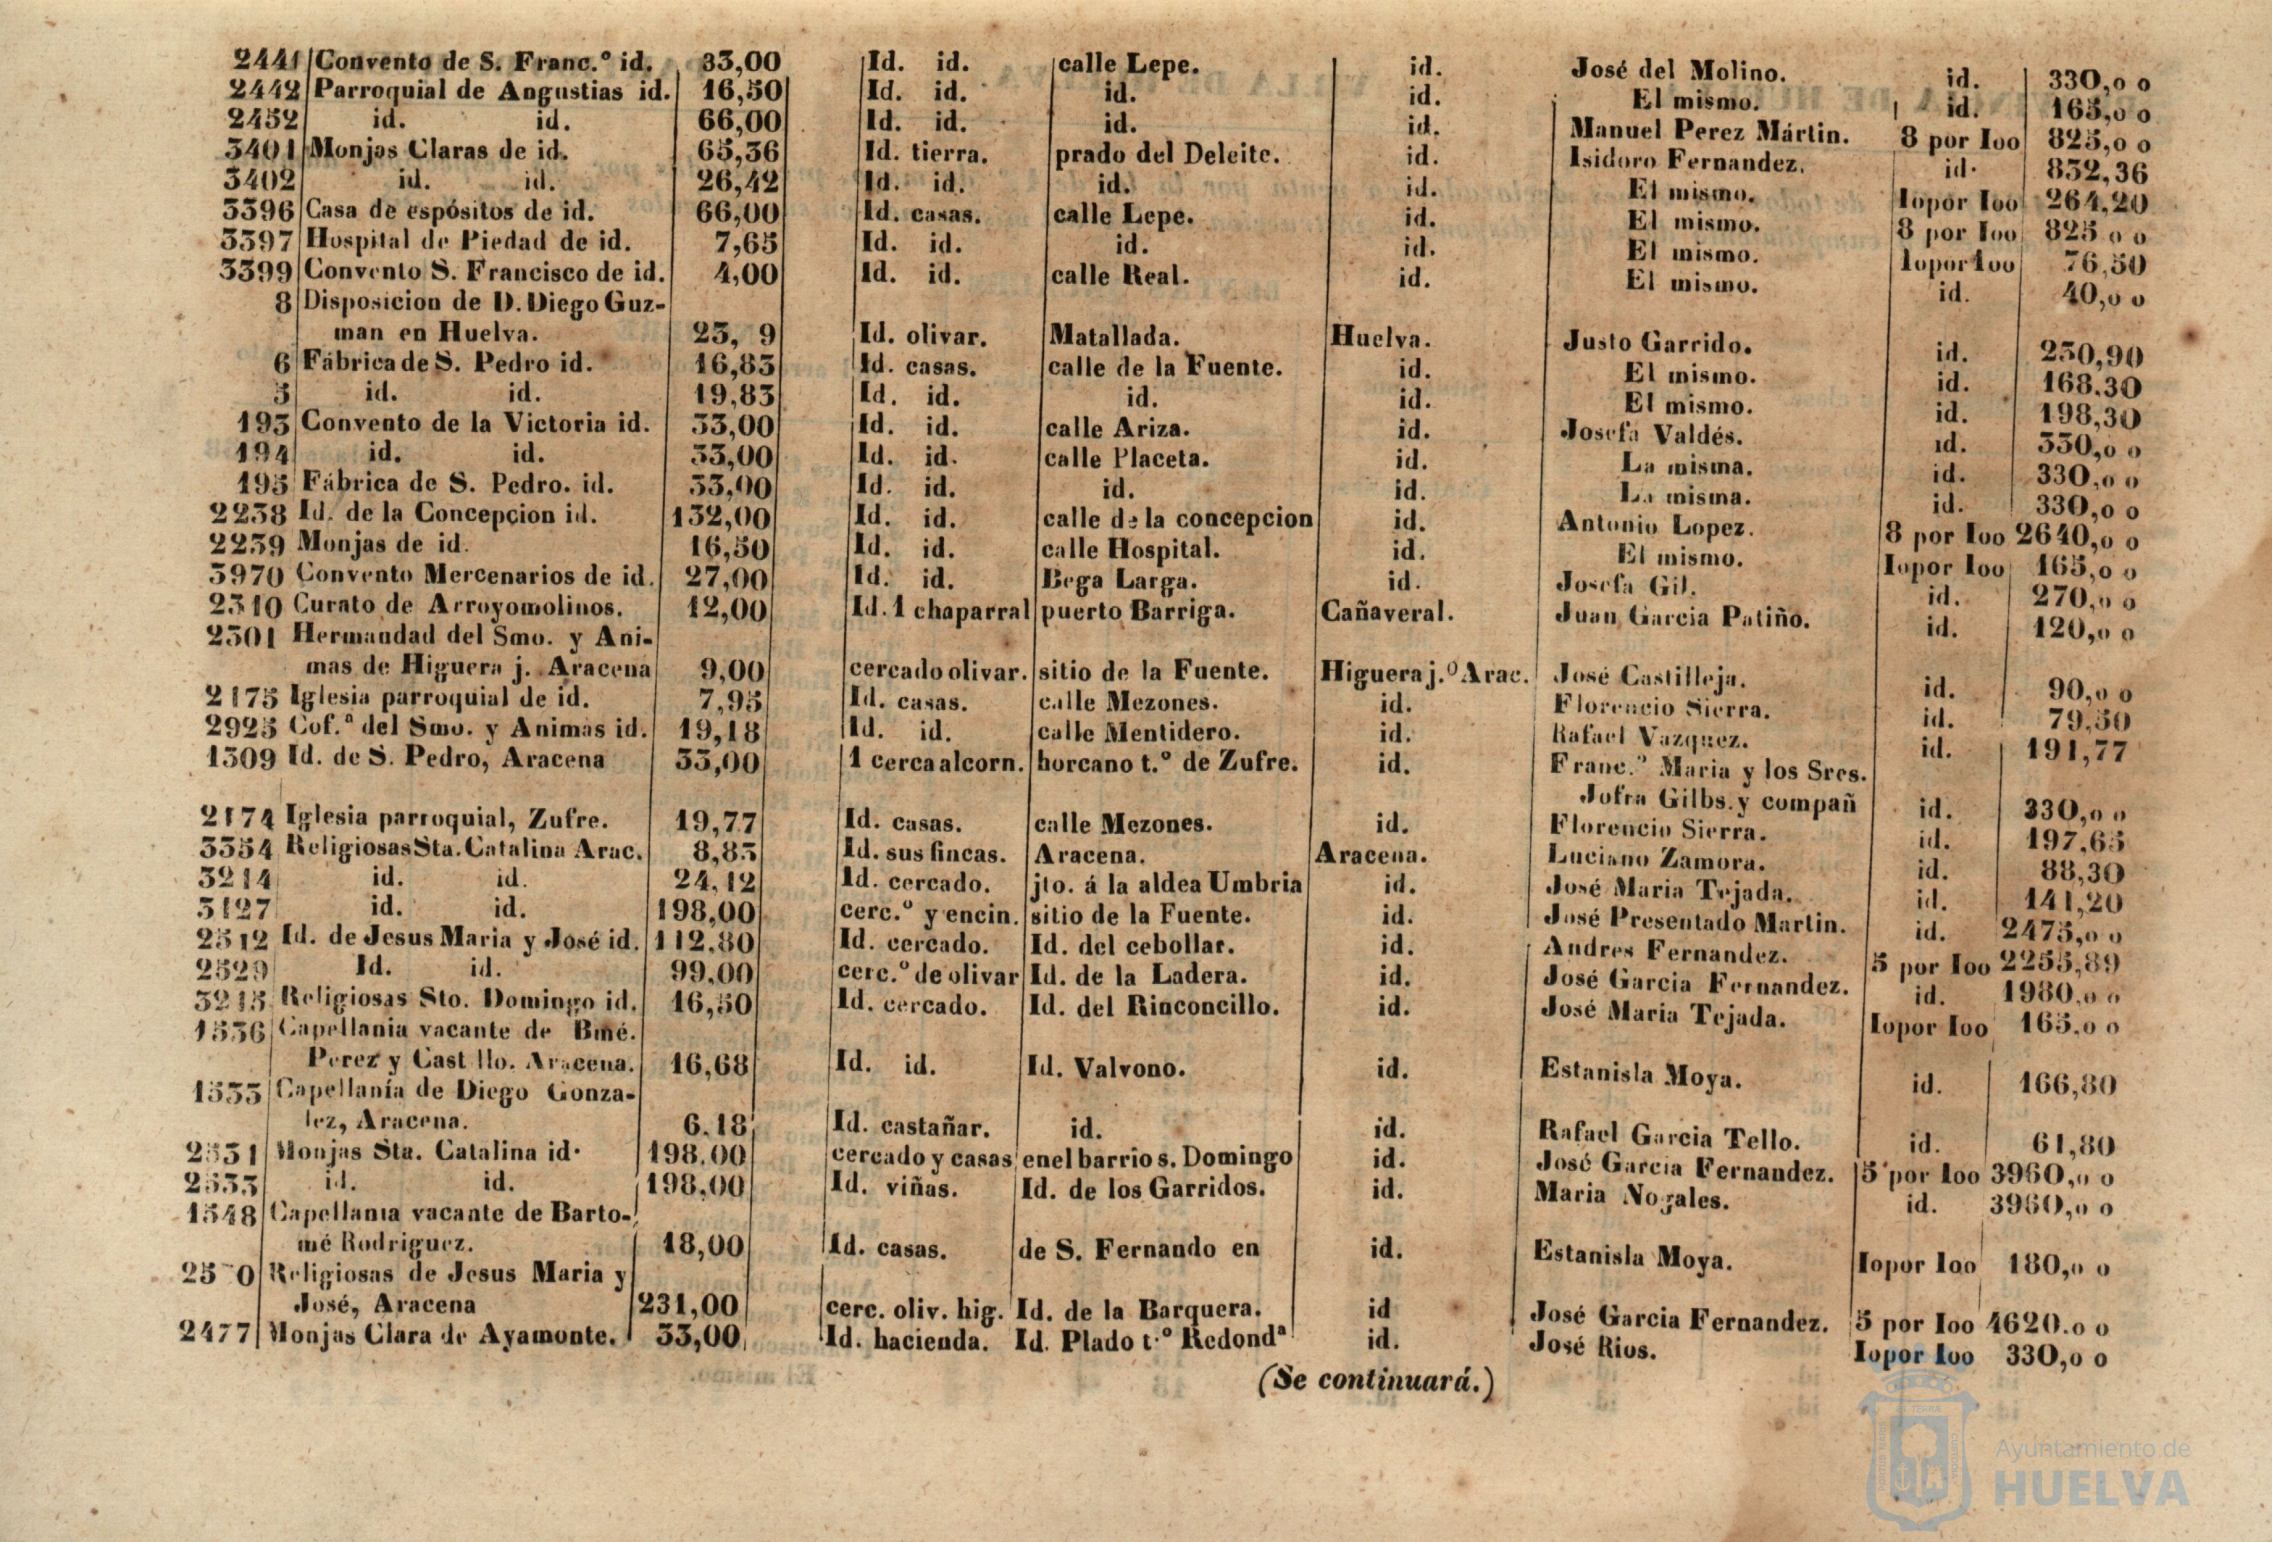 2441 Convento de S. Franc.º id. 33,00 Id. id. calle Lepe. id. José del Molino. id. 330,o o
2442 Parroquial de Angustias id. 16,50 Id. id. id. id. El mismo. id. 165,o o
2452 id. id. 66,00 Id. id. id. id. Manuel Perez Mártin. 8 por Ioo 825,o o
3401 Monjas Claras de id. 65,36 Id. tierra. prado del Deleite. id. Isidoro Fernandez. id. 832,36
3402 id. id. 26,42 Id. id. id. id. El mismo. Iopor Ioo 264,20
3396 Casa de espósitos de id. 66,00 Id. casas. calle Lepe. id. El mismo. 8 por Ioo 825 o o
3397 Hospital de Piedad de id. 7,65 Id. id. id. id. El mismo. Iopor Ioo 76,50
3399 Convento S. Francisco de id. 4,00 Id. id. calle Real. id. El mismo. id. 40,o o
8 Disposicion de D. Diego Guz-
man en Huelva. 23, 9 Id. olivar. Matallada. Huelva. Justo Garrido. id. 230,90
6 Fábrica de S. Pedro id. 16,83 Id. casas. calle de la Fuente. id. El mismo. id. 168,30
5 id. id. 19,83 Id. id. id. id. El mismo. id. 198,30
193 Convento de la Victoria id. 33,00 Id. id. calle Ariza. id. Josefa Valdés. id. 330,o o
194 id. id. 33,00 Id. id. calle Placeta. id. La misma. id. 330,o o
195 Fábrica de S. Pedro. id. 33,00 Id. id. id. id. La misma. id. 330,o o
2238 Id. de la Concepcion id. 132,00 Id. id. calle de la concepcion id. Antonio Lopez. 8 por Ioo 2640,o o
2239 Monjas de id. 16,50 Id. id. calle Hospital. id. El mismo. Iopor Ioo 165,o o
3970 Convento Mercenarios de id. 27,00 Id. id. Bega Larga. id. Josefa Gil. id. 270,o o
2310 Curato de Arroyomolinos. 12,00 Id. 1 chaparral puerto Barriga. Cañaveral. Juan Garcia Patiño. id. 120,o o
2301 Hermandad del Smo. y Ani-
mas de Higuera j. Aracena 9,00 cercado olivar. sitio de la Fuente. Higuera j.º Arac. José Castilleja. id. 90,o o
2175 Iglesia parroquial de id. 7,95 Id. casas. calle Mezones. id. Florencio Sierra. id. 79,50
2925 Cof.ª del Smo. y Animas id. 19,18 Id. id. calle Mentidero. id. Rafael Vazquez. id. 191,77
1309 Id. de S. Pedro, Aracena 33,00 1 cerca alcorn. horcano t.º de Zufre. id. Franc.ª Maria y los Sres.
Jofra Gilbs. y compañ id. 330,o o
2174 Iglesia parroquial, Zufre. 19,77 Id. casas. calle Mezones. id. Florencio Sierra. id. 197,65
3354 Religiosas Sta. Catalina Arac. 8,83 Id. sus fincas. Aracena. Aracena. Luciano Zamora. id. 88,30
3214 id. id. 24,12 Id. cercado. jto. á la aldea Umbria id. José Maria Tejada. id. 141,20
3127 id. id. 198,00 cerc.º y encin. sitio de la Fuente. id. José Presentado Martin. id. 2475,o o
2512 Id. de Jesus Maria y José id. 112,80 Id. cercado. Id. del cebollar. id. Andres Fernandez. 5 por Ioo 2255,89
2529 Id. id. 99,00 cerc.º de olivar Id. de la Ladera. id. José Garcia Fernandez. id. 1980,o o
3215 Religiosas Sto. Domingo id. 16,50 Id. cercado. Id. del Rinconcillo. id. José Maria Tejada. Iopor Ioo 165,o o
1536 Capellania vacante de Bmé.
Perez y Castillo. Aracena. 16,68 Id. id. Id. Valvono. id. Estanisla Moya. id. 166,80
1533 Capellanía de Diego Gonza-
lez, Aracena. 6.18 Id. castañar. id. id. Rafael Garcia Tello. id. 61,80
2531 Monjas Sta. Catalina id. 198.00 cercado y casas en el barrio s. Domingo id. José Garcia Fernandez. 5 por Ioo 3960,o o
2533 id. id. 198,00 Id. viñas. Id. de los Garridos. id. Maria Nogales. id. 3960,o o
1548 Capellania vacante de Barto-
mé Rodriguez. 18,00 Id. casas. de S. Fernando en id. Estanisla Moya. Iopor Ioo 180,o o
Religiosas de Jesus Maria y
José, Aracena 231,00 cerc. oliv. hig. Id. de la Barquera. id José Garcia Fernandez. 5 por Ioo 4620.o o
2477 Monjas Clara de Ayamonte. 33,00 Id. hacienda. Id. Plado t.º Redondª id. José Rios. Iopor Ioo 330,o o
(Se continuará.)
Ayuntamiento de
HUELVA